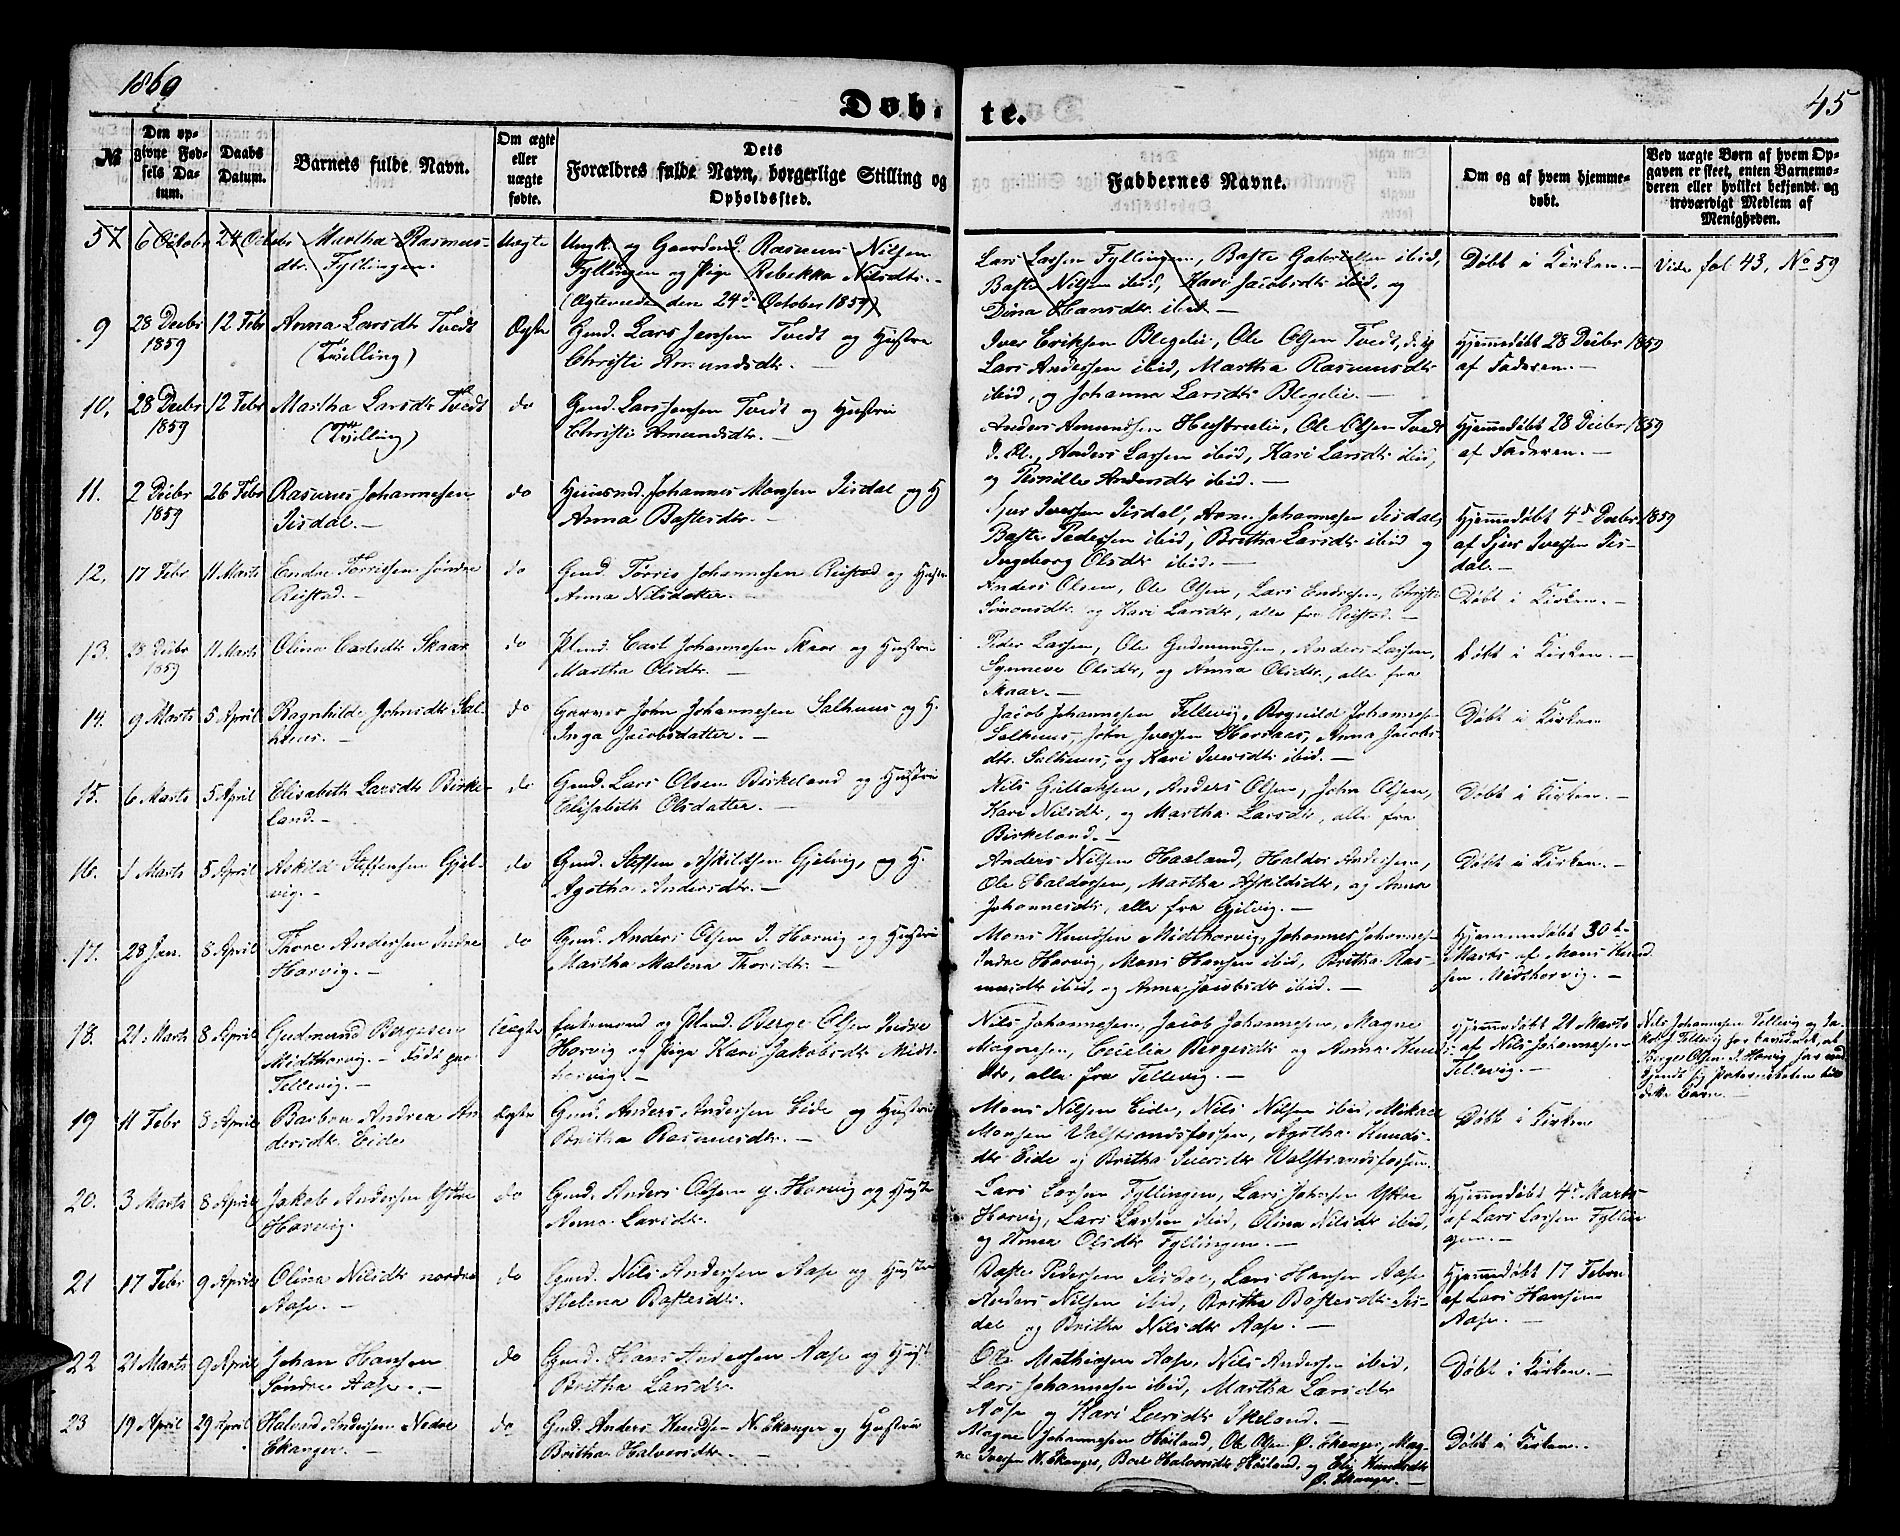 1860
45
Døbte.
№
Den opgivne Fødsels Datum.
Daabs Datum.
Barnets fulde Navn.
Om ægte eller uægte fødte.
Dets Forældres fulde Navn, borgerlige Stilling og Opholdssted.
Faddernes Navne.
Om og af hvem hjemmedøbt.
Ved uægte Børn af hvem Opgaven er skeet, enten Barnemoderen eller hvilket bekjendt og troværdigt Medlem af Menigheden.
57 6 Octobr 24 Octobr Martha Rasmus- Uægte Ungk. og Gaardmd. Rasmus Nilsen
dtr. Fyllingen. Fyllingen og Pige Rebekka Nilsdtr. -
(Ægteviede den 24de October 1859)
Lars Larsen Fyllingen, Baste Gabrielsen ibid,
Baste Nilsen ibid, Kari Jacobsdtr ibid, og
Dina Hansdtr ibid. -
Døbt i Kirken. - Vide fol 43, No 59
9 28 Decbr 12 Febr Anna Larsdtr Tvedt Ægte Gmd. Lars Jensen Tvedt og Hustru
1859 (Tvilling) Christi Amundsdtr. -
Iver Eriksen Blegelie, Ole Olsen Tvedt, d. y.
Lars Andersen ibid, Martha Rasmusdtr
ibid, og Johanna Larsdtr Blegelie. -
Hjemmedøbt 28 Decbr 1859
af Faderen. -
10, 28 Decbr 12 Febr Martha Larsdtr Tvedt do Gmd. Lars Jensen Tvedt og Hustru
1859 (Tvilling) Christi Amundsdtr. -
Anders Amundsen Ole Olsen Tvedt
d. Æl., Anders Larsen ibid, Kari Larsdtr ibid,
og Pernille Andersdtr ibid. -
Hjemmedøbt 28 Decbr 1859
af Faderen. -
11. 2 Decbr 26 Febr Rasmus Johannesen do Huusmd. Johannes Monsen Iisdal og H
1859 Iisdal. - Anna Bastesdtr. -
Sjur Iversen Iisdal, Arne Johannesen Iisdal,
Baste Pedersen ibid, Britha Larsdtr ibid og
Ingeborg Olsdtr ibid. -
Hjemmedøbt 4de Decbr 1859
af Sjur Iversen Iis-
dal. -
12, 17 Febr 11 Marts Endre Torrissen søndre do Gmd. Torris Johannesen Reistad og Hustru
Reistad. - Anna Nilsdatter. -
Anders Olsen, Ole Olsen, Lars Endresen, Christi
Simonsdtr. og Kari Larsdtr, alle fra Reistad. -
Døbt i Kirken. -
13. 28 Decbr 11 Marts Olina Carlsdtr Skaar do Plmd. Carl Johannesen Skaar og Hustru
1859 Martha Olsdtr. -
Peder Larsen, Ole Gudmundsen, Anders Larsen,
Synneve Olsdtr, og Anna Olsdtr., alle fra
Skaar. -
Døbt i Kirken. -
14. 9 Marts 5 April Ragnhilde Johnsdtr Sal- do Garver John Johannesen Salhuus og H.
huus. - Inga Jacobsdatter. -
Jacob Johannesen Tellevig, Ragnild Johannesen
Salhuus, John Iversen Anna Jacobs-
dtr. Salhuus, og Kari Iversdtr ibid. -
Døbt i Kirken
15. 6 Marts 5 April Elisabeth Larsdtr Birke- do Gmd. Lars Olsen Birkeland og Hustru
land. - Elisabeth Olsdatter. -
Nils Gullaksen, Anders Olsen, John Olsen,
Kari Nilsdtr, og Martha Larsdtr, alle fra
Birkeland. -
Døbt i Kirken. -
16. 1 Marts 5 April Askild Steffensen Gjel- do Gmd. Steffen Askildsen Gjelvig, og H.
vig. - Agatha Andersdtr. -
Anders Nilsen Haaland, Haldor Andersen,
Ole Haldorsen, Martha Askildsdtr, og Anna
Johannesdtr, alle fra Gjelvig. -
Døbt i Kirken. -
17. 28 Jan. 8 April Thore Andersen Indre do Gmd. Anders Olsen I. Horvig og Hustru
Horvig. - Martha Malena Thorsdtr. -
Mons Knudsen Midthorvig, Johannes Johannes-
Indre Horvig, Mons Hansen ibid, Britha Ras-
musdtr ibid, og Anna Jacobsdtr ibid. -
Hjemmedøbt 30te
Marts af Mons Knud-
sen Midthorvig. -
18. 21 Marts 8 April Gudmund Bergesen Uægte Enkemand og Plmd. Berge Olsen Indre
Midthorvig. - Født paa Horvig og Pige Kari Jakobsdtr Midt-
Tellevig. - horvig. -
Nils Johannesen, Jacob Johannesen, Magne
Magnesen, Cecilia Bergesdtr og Anna Knuds-
dtr, alle fra Tellevig. -
Hjemmedøbt 21 Marts
af Nils Johannesen
Tellevig. -
Nils Johannesen Tellevig og Ja-
kob J. Tellevig har bevidnet, at
Berge Olsen I. Horvig har ved-
kjendt sig Paterniteten til
dette Barn. -
19 11 Febr 8 April Barbra Andrea An- Ægte Gmd. Anders Andersen Eide og Hustru
dersdtr Eide Britha Rasmusdtr. -
Mons Nilsen Eide, Nils Nilsen ibid, Mikael
Monsen Valestrandsfossen, Agatha Knuds-
dtr Eide og Britha Iversdtr Valestrandsfossen.
Døbt i Kirken
20. 3 Marts 8 April Jakob Andersen Ystre do Gmd. Anders Olsen y. Horvig og Hustru
Horvig. Anna Larsdtr.
Lars Larsen Fyllingen, Lars Johnsen Ystre
Horvig, Lars Larsen ibid, Olina Nilsdtr ibid,
og Anna Olsdtr Fyllingen. -
Hjemmedøbt 4de Marts
af Lars Larsen Fyllin-
gen. -
21 17 Febr 9 April Olina Nilsdtr nordre do Gmd. Nils Andersen Aase og Hustru
Aase. - Helena Bastesdtr.
Baste Pedersen Iisdal, Lars Hansen Aase
Anders Nilsen ibid, Britha Bastesdtr Iis-
dal og Britha Nilsdtr Aase. -
Hjemmedøbt 17 Febru
af Lars Hansen
Aase. -
22 21 Marts 9 April Johan Hansen do Gmd. Hans Andersen Aase og Hust
Søndre Aase. - Britha Larsdtr.
Ole Mathissen Aase, Nils Andersen ibid,
Lars Johannesen ibid, Martha Larsdtr
Aase og Kari Larsdtr Ikeland. -
Døbt i Kirken. -
23 19 April 29 April Halvard Andersen Nedre do Gmd. Anders Knudsen N. Ekanger og Hustru
Ekanger. - Britha Halvorsdtr. -
Magne Johannesen Høiland, Ole Olsen Ø. Ekanger, Mag-
ne Iversen N. Ekanger, Boel Halvorsdtr Høiland, og Eli Knudsdtr
Ø. Ekanger. -
Døbt i Kirken.